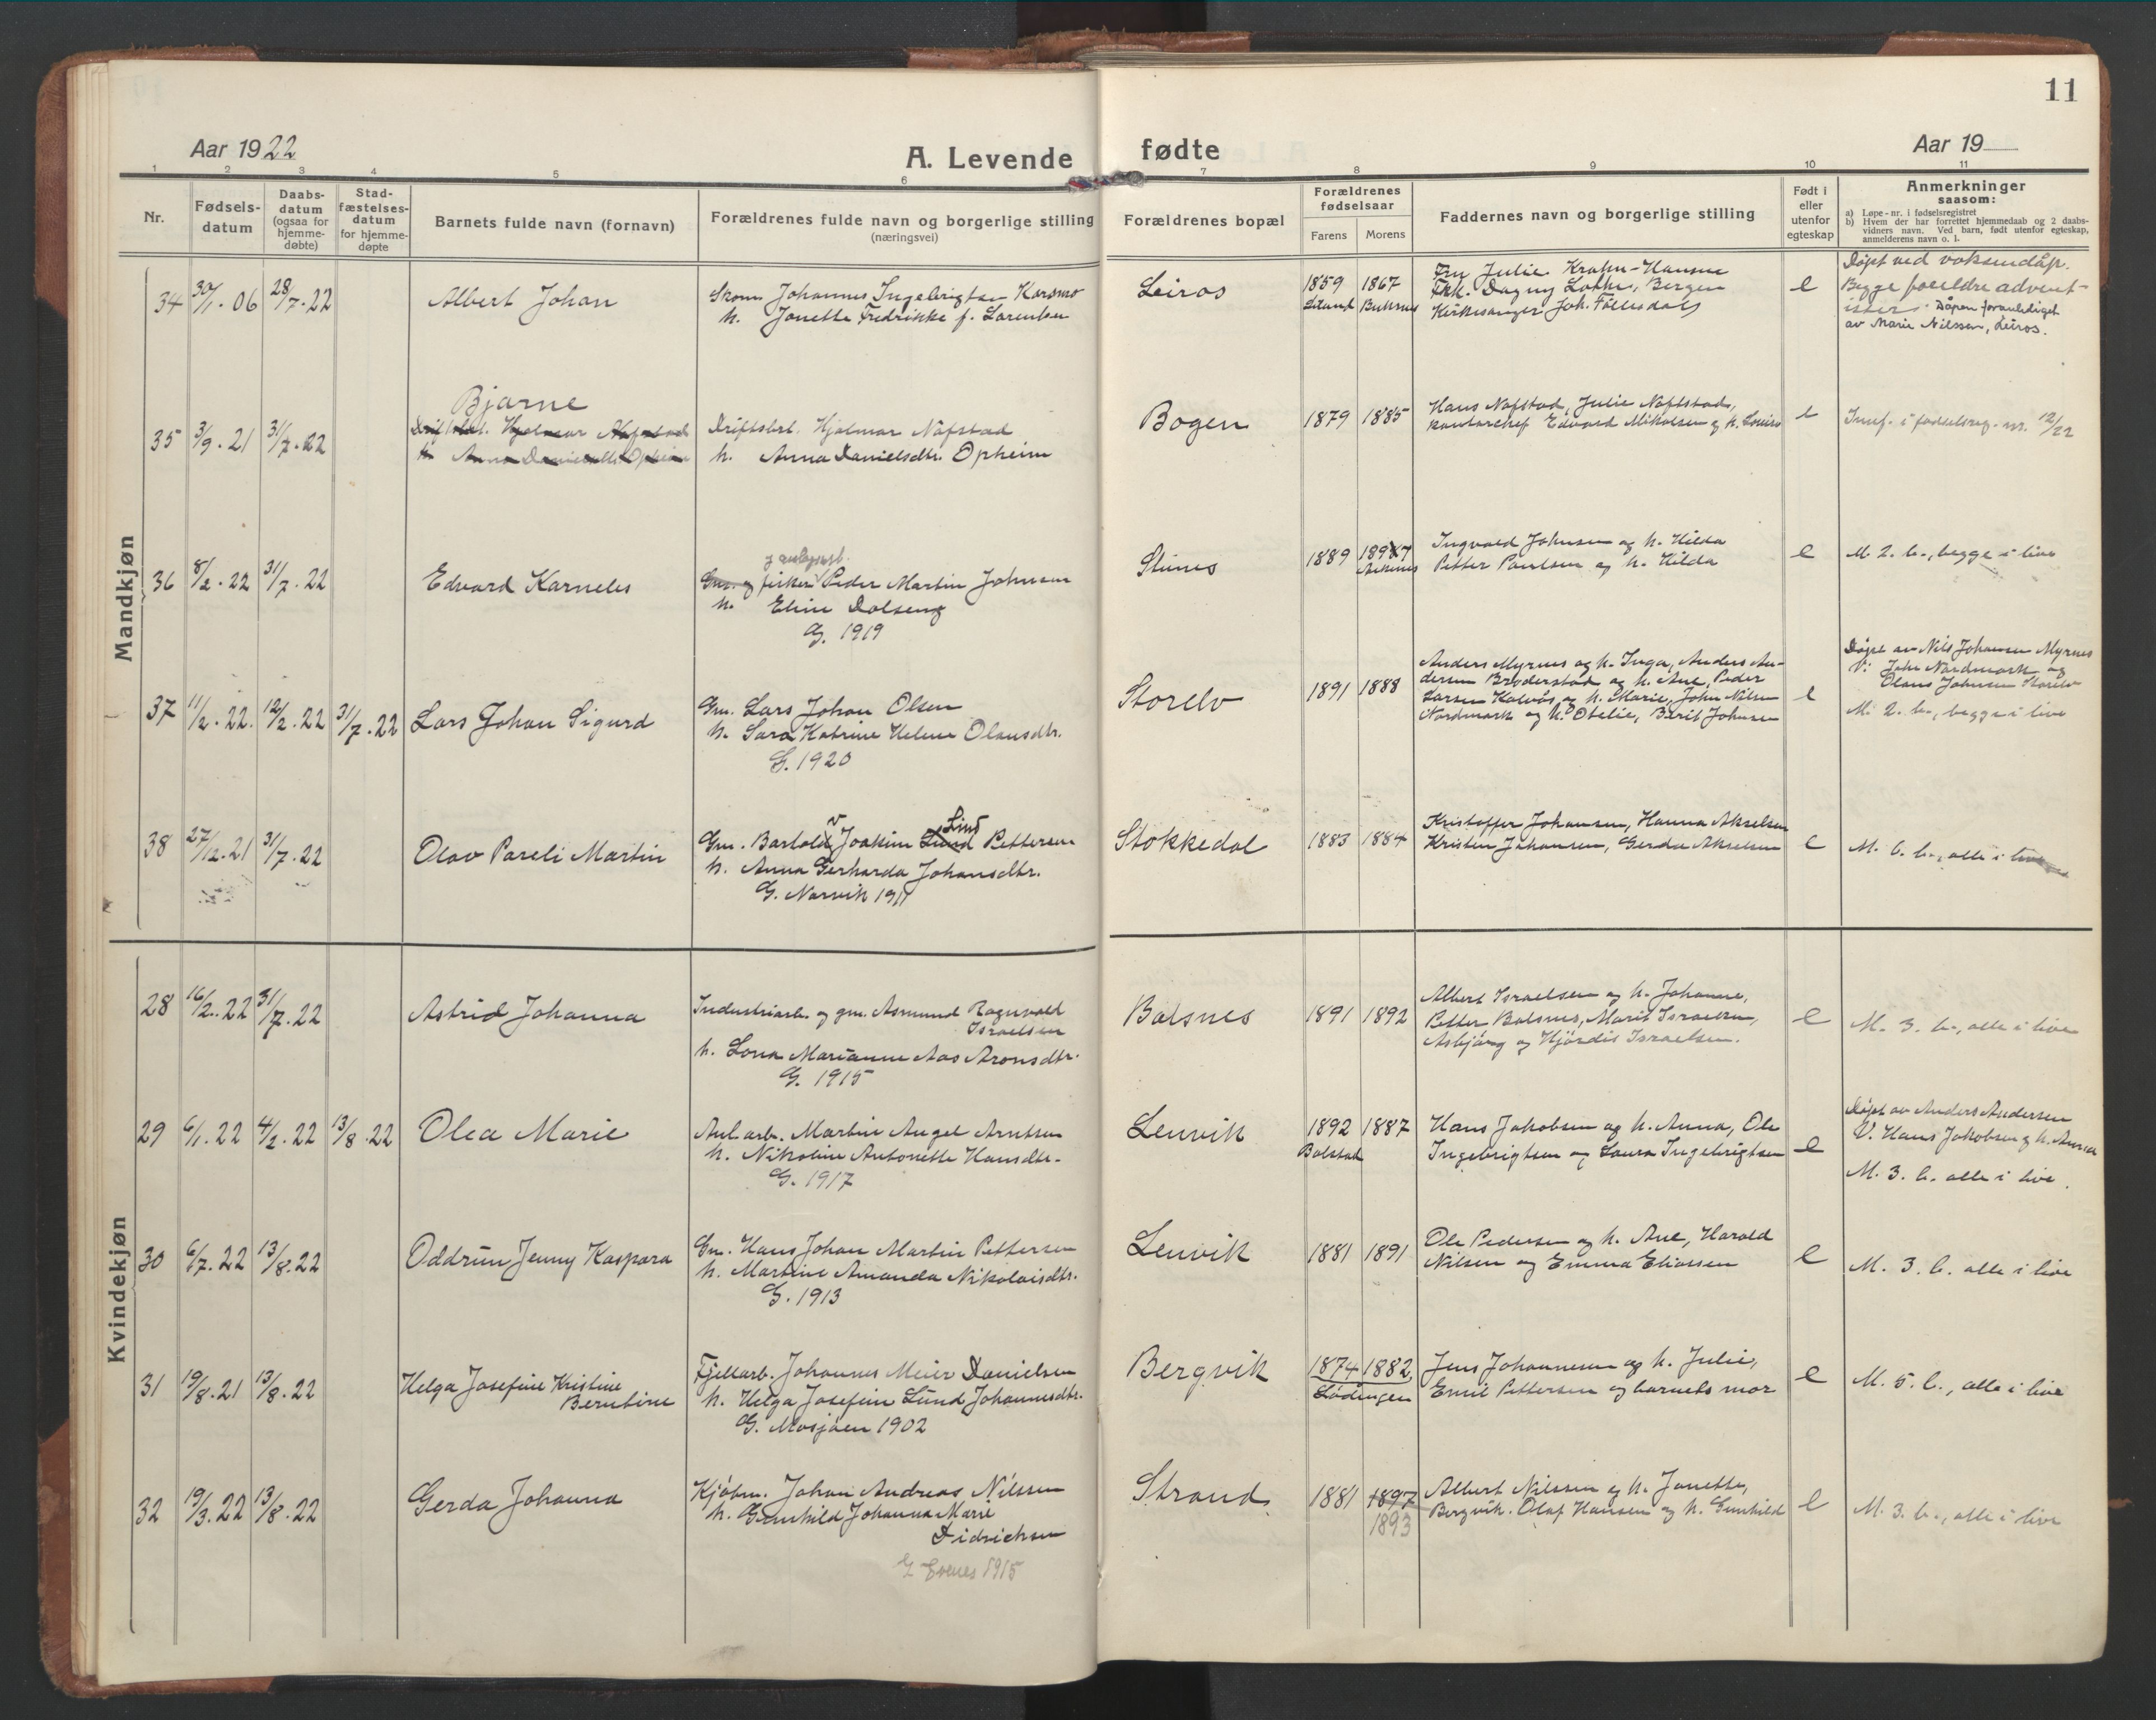 11
Aar 1922
A. Levende fødte
Aar 19
1 2 3 4 5 6 7 8 9 10 11
Nr.
Fødsels-
datum
Daabs-
datum
(ogsaa for
hjemme-
døbte)
Stad-
fæstelses-
datum
for hjemme-
døpte
Barnets fulde navn (fornavn)
Forældrenes fulde navn og borgerlige stilling
(næringsvei)
Forældrenes bopæl
Forældrenes
fødselsaar
Farens Morens
Faddernes navn og borgerlige stilling
Født i
eller
utenfor
egteskap
Anmerkninger
saasom:
a) Løpe-nr. i fødselsregistret
b) Hvem der har forrettet hjemmedaab og 2 daabs-
vidners navn. Ved barn, født utenfor egteskap,
anmelderens navn o. l.
Mandkjøn
34 30/1.06 28/7.22
Albert Johan
Skom. Johannes Ingebrigtsen Karsmo
h. Jonette Fredrikke f. Lorentsen
Leiros
1859 1867
Fru Julie Krohn-Hansen
Frk. Dagny Løtke, Bergen
Kirkesanger Joh. Föllesdal
e
Döpt ved voksendåp.
Begge foreldre advent-
ister. Dåpen foranlediget
av Marie Nilssen, Leiros.
35 3/9.21 31/7.22
Bjarne
Driftsbst. Hjalmar Nofstad
h. Anna Danielsdtr. Opheim
Driftsbst. Hjalmar Nofstad
h. Anna Danielsdtr. Opheim
Bogen
1879 1885
Hans Nofstad, Julie Nofstad,
kontorchef Edvard Mikalsen og h. Lovise
e
Innf. i fødselsreg. nr. 12/22
36 8/2.22 31/7.22
Edvard Karneles
Gm. og fisker Peder Martin Johnsen
h. Eline Dalseng
G. 1919
1889 1897
Ingvald Johnsen og h. Hilda
Petter Paulsen og h. Hilda
e
M 2. b., begge i live
37 11/2.22. 12/2.22 31/7.22
Lars Johan Sigurd
Gm. Lars Johan Olsen
h. Sara Katrine Helene Olausdtr.
G. 1920
Storelv
1891 1888
Anders Myrnes og h. Inga, Anders An-
dersen Bröderstad og h. Ane, Peder
Larsen Kalvås og h. Marie, John Nilsen
Nordmark og h. Otelie, Berit Johnsen
e
Döpt av Nils Johansen Myrnes
V: John Nordmark og
Olaus Johnsen Storelv
M. 2. b., begge i live
38 27/12.21 31/7.22
Olav Pareli Martin
Lind
Gm. Bartold Joakim Lund Pettersen
h. Anna Gerharda Johansdtr.
G. Narvik 1911
Stokkedal
1883 1884
Kristoffer Johansen, Hanna Akselsen
Kristen Johansen, Gerda Akselsen
e
M. 6. b., alle i live
Kvindekjøn
28 16/2.22 31/7.22
Astrid Johanna
Industriarb. og gm. Asmund Ragnvald
Israelsen
h. Lona Marianne Aas Aronsdtr.
G. 1915
Balsnes
1891 1892
Albert Israelsen og h. Johanne,
Petter Balsnes, Marit Israelsen,
Asbjörg og Hjördis Israelsen.
e
M. 3. b., alle i live
29 6/1.22 4/2.22 13/8.22
Olea Marie
Anl.arb. Martin Angel Arntsen
h. Nikoline Antonette Hansdtr.
G. 1917
Lenvik
1892 1887
Balstad
Hans Jakobsen og h. Anna, Ole
Ingebrigtsen og Laura Ingebrigtsen
e
Döpt av Anders Andersen
V. Hans Jakobsen og h. Anna
M. 3. b. alle i live.
30 6/7.22 13/8.22
Oddrun Jenny Kaspara
Gm. Hans Johan Martin Pettersen
h. Martine Amanda Nikolaisdtr.
G. 1913
Lenvik
1881 1891
Ole Pedersen og h. Ane, Harald
Nilsen og Emma Eliassen
e
M. 3. b. alle i live
31 19/8.21 13/8.22
Helga Josefine Kristine
Berntine
Fjellarb. Johannes Meier Danielsen
h. Helga Josefine Lund Johannesdtr.
G. Mosjöen 1902
Bergvik
1874 1882
Lödingen
Jens Johannesen og h. Julie,
Emil Pettersen og barnets mor
e
M. 5. b., alle i live
32 19/3.22 13/8.22
Gerda Johanna
Kjöbm. Johan Andreas Nilssen
h. Gunhild Johanna Marie
Didriksen
G Evenes 1915
Strand
1881 1897
1893
Albert Nilssen og h. Jonette,
Bergvik. Olaf Hansen og h. Gunhild
e
M. 3. b., alle i live